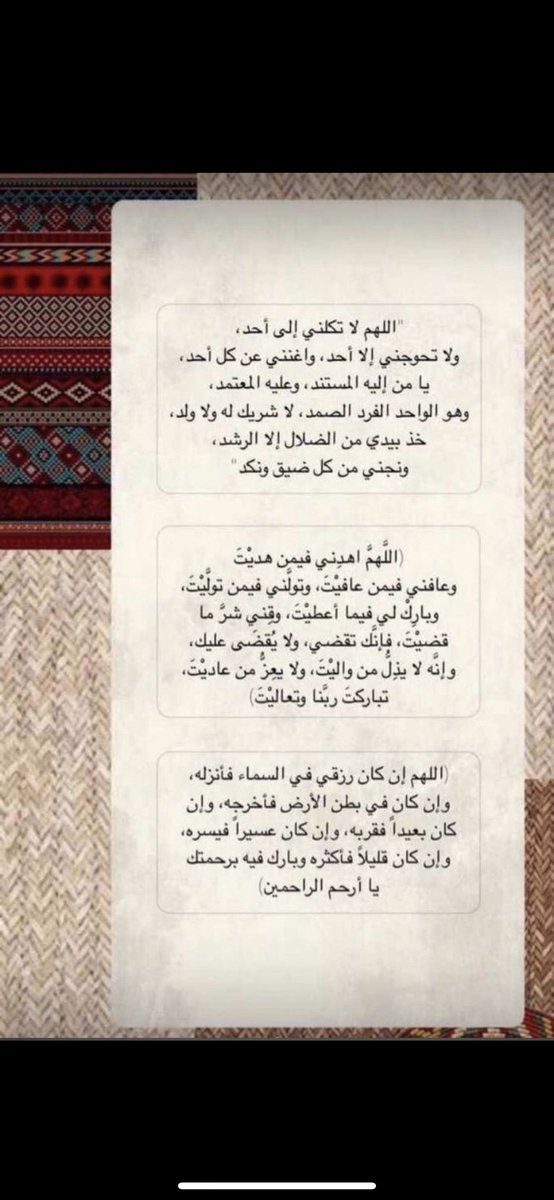 "اللهم لا تكلني إلى أحد،
ولا تحوجني إلا أحد، واغنني عن كل أحد،
يا من إليه المستند، وعليه المعتمد،
وهو الواحد الفرد الصمد، لا شريك له ولا ولد،
خذ بيدي من الضلال إلا الرشد،
ونجني من كل ضيق ونكد"
(اللَّهمَّ اهدِني فيمن هديْتَ
وعافني فيمن عافيْتَ، وتولَّني فيمن تولَّيْتَ،
وبارِكْ لي فيما أعطيْتَ، وقِني شرَّ ما
قضيْتَ، فإنَّك تقضي، ولا يُقضَى عليك،
وإنَّه لا يذِلُّ من واليْتَ، ولا يعِزُّ من عاديْتَ،
تباركتَ ربَّنا وتعاليْتَ)
(اللهم إن كان رزقي في السماء فأنزله،
وإن كان في بطن الأرض فأخرجه، وإن
كان بعيداً فقربه، وإن كان عسيراً فيسره،
وإن كان قليلاً فأكثره وبارك فيه برحمتك
يا أرحم الراحمين)